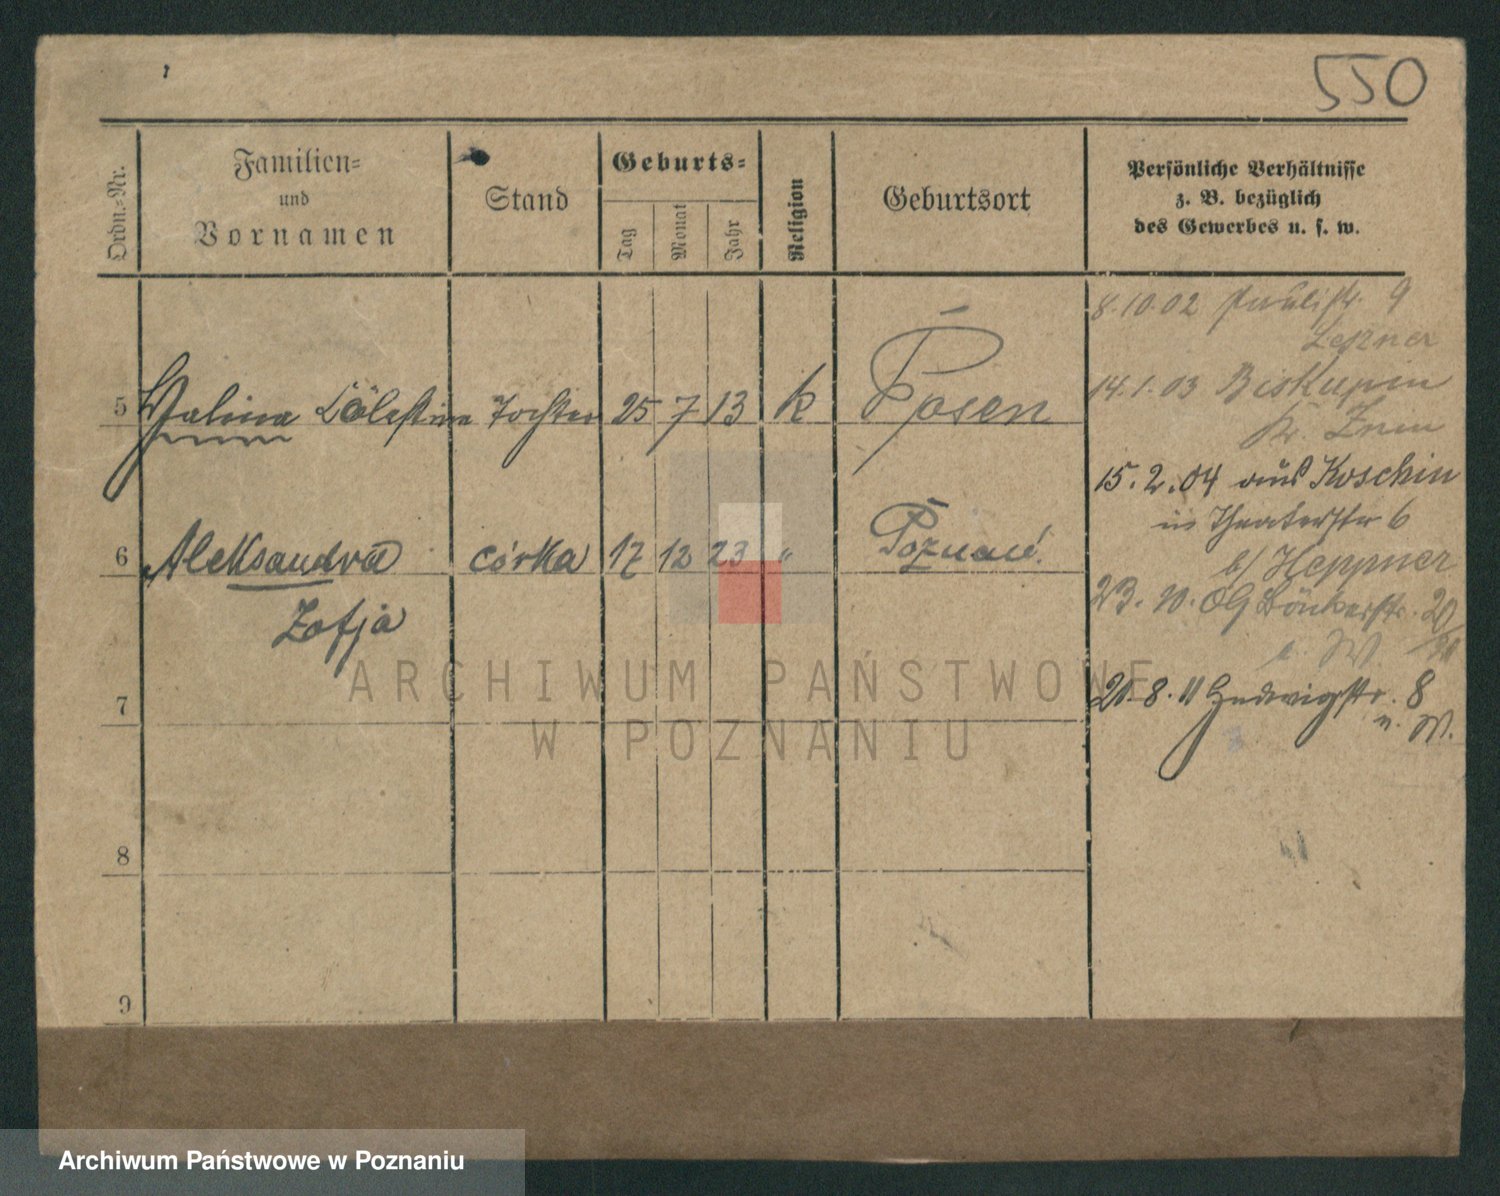 550
Ordn.-Nr.
Familien-
und
Vornamen
Stand
Geburts-
Tag
Monat
Jahr
Religion
Geburtsort
Persönliche Verhältnisse
z. B. bezüglich
des Gewerbes u. s. w.
5 Halina Cölestine Tochter 25 7 13 k Posen
6 Aleksandra córka 17 12 23 " Poznań.
Zofja
7
8
9
8.10.02 9
Lepner
14.1.03 Biskupin
Kr. Znin
15.2.04 aus Koschin
in Theaterstr 6
b/ Heppner
23. 10. 09 Bänkerstr. 20/
W.
20.8.11 Hedwigstr. 8
u. W.
ARCHIWUM PAŃSTWOWE
W POZNANIU
Archiwum Państwowe w Poznaniu